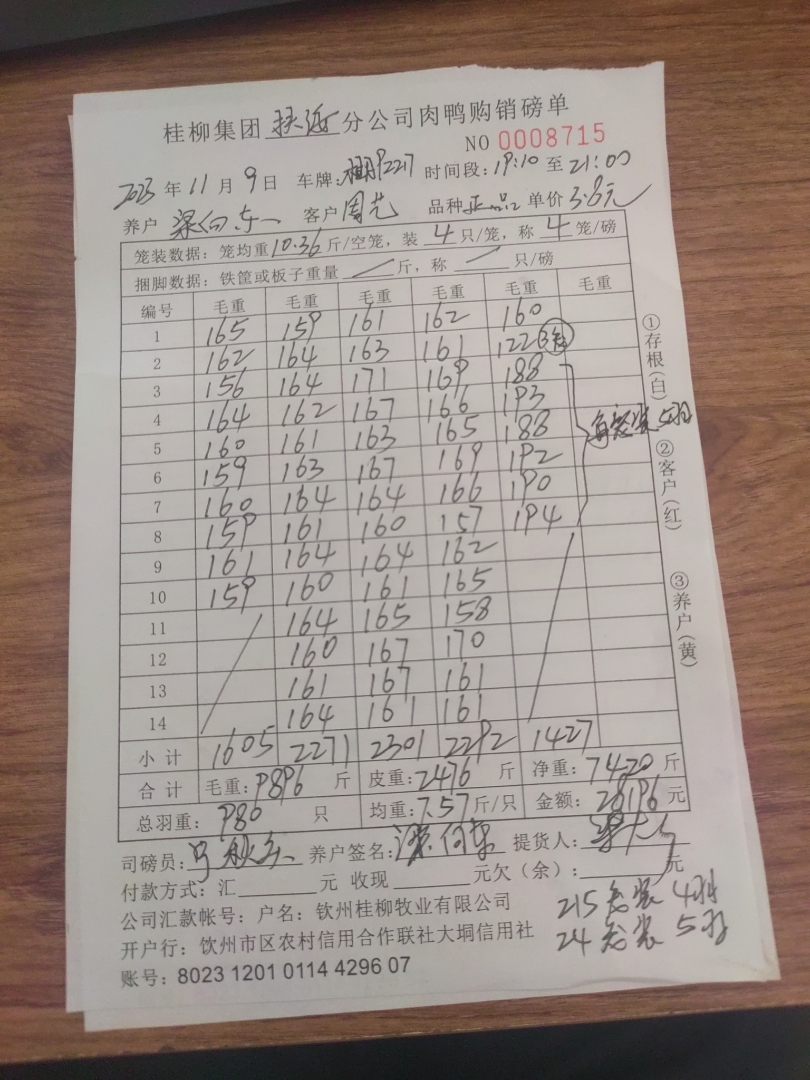 桂柳集团 扶海 分公司肉鸭购销磅单
NO 0008715
2023 年 11 月 9 日 车牌: P2217 时间段: 19:10 至 21:00
养户 梁向东 客户 周艺 品种 正品 单价 3.8元
笼装数据: 笼均重 10.36 斤/空笼, 装 4 只/笼, 称 4 笼/磅
捆脚数据: 铁筐或板子重量 斤, 称 只/磅
编号 毛重 毛重 毛重 毛重 毛重 毛重
1 165 159 161 162 160
2 162 164 163 161 122 3笼
3 156 164 171 169 188
4 164 162 167 166 193
5 160 161 163 165 188 每笼装5羽
6 159 163 167 169 192
7 160 164 164 166 190
8 159 161 160 157 194
9 161 164 164 162
10 159 160 161 165
11 164 165 158
12 160 167 170
13 161 167 161
14 164 161 161
小计 1605 2271 2301 2292 1427
合计 毛重: 9896 斤 皮重: 2476 斤 净重: 7420 斤
总羽重: 980 只 均重: 7.57 斤/只 金额: 28196 元
司磅员: 养户签名: 梁向东 提货人:
付款方式: 汇 元 收现 元欠(余): 元
公司汇款帐号: 户名: 钦州桂柳牧业有限公司
215笼装4羽
开户行: 饮州市区农村信用合作联社大垌信用社
24笼装5羽
账号: 8023 1201 0114 4296 07
①存根(白)
②客户(红)
③养户(黄)